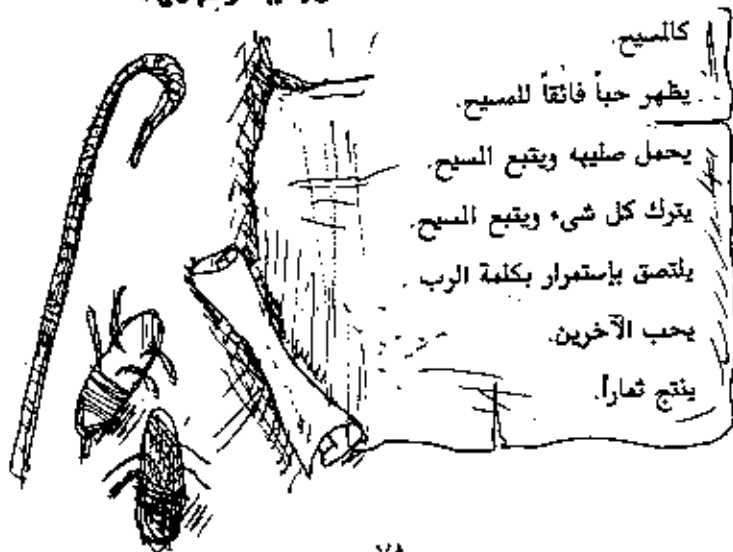 كالمسيح.
يظهر حباً فائقاً للمسيح.
يحمل صليبه ويتبع المسيح.
يترك كل شىء ويتبع المسيح.
يلتصق بإستمرار بكلمة الرب.
يحب الآخرين.
ينتج ثماراً.